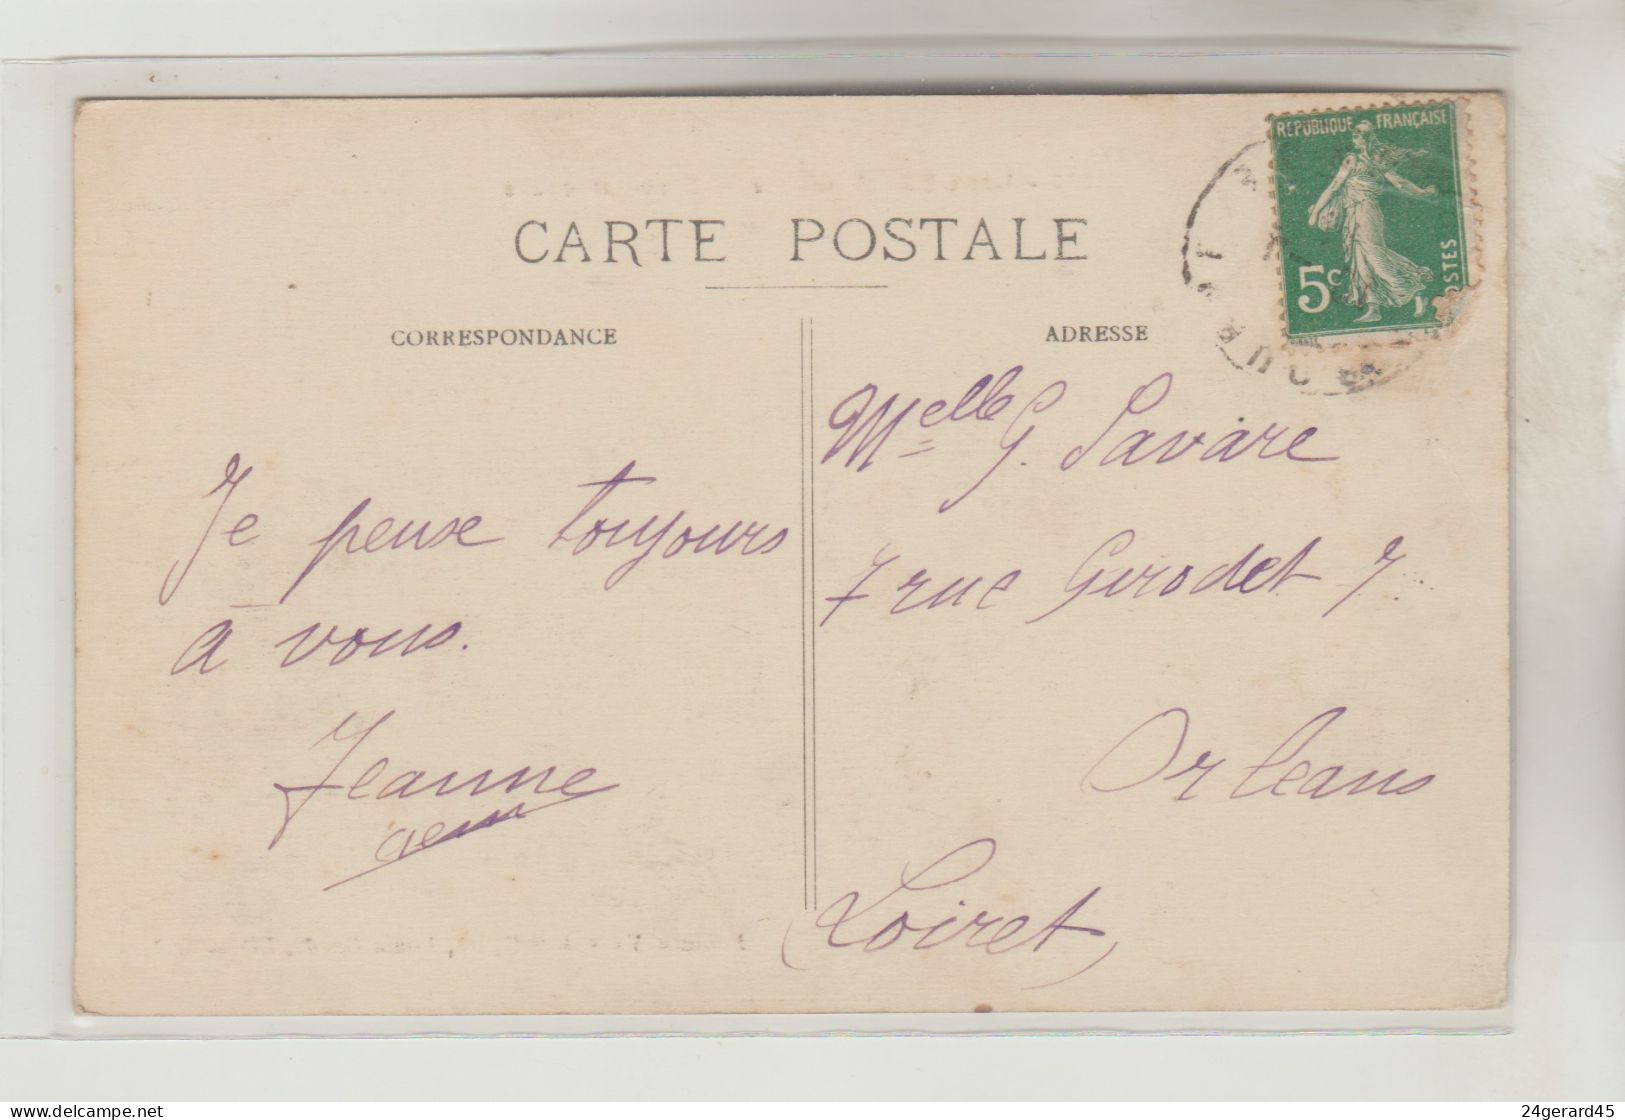 CARTE POSTALE
CORRESPONDANCE
Je pense toujours
à vous.
Jeanne
ADRESSE
Melle G. Savare
7 rue Girodet 7
Orleans
(Loiret)
REPUBLIQUE FRANÇAISE
5c
POSTES
24gerard45